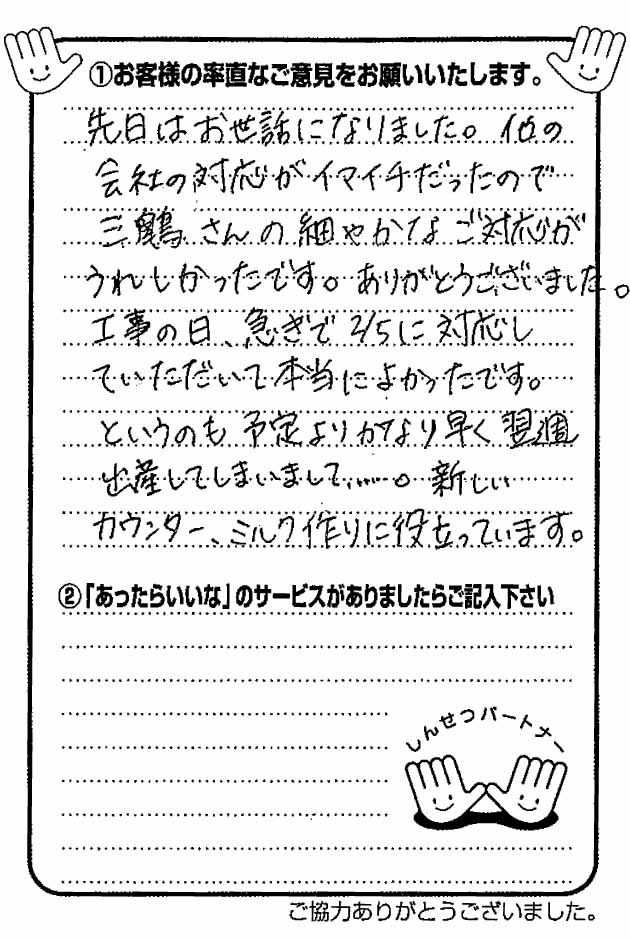 ①お客様の率直なご意見をお願いいたします。
先日はお世話になりました。他の
会社の対応がイマイチだったので
三鶴さんの細やかなご対応が
うれしかったです。ありがとうございました。
工事の日、急ぎで2/5に対応し
ていただいて本当によかったです。
というのも予定よりかなり早く翌週
出産してしまいまして……。新しい
カウンター、ミルク作りに役立っています。
②「あったらいいな」のサービスがありましたらご記入下さい
しんせつパートナー
ご協力ありがとうございました。